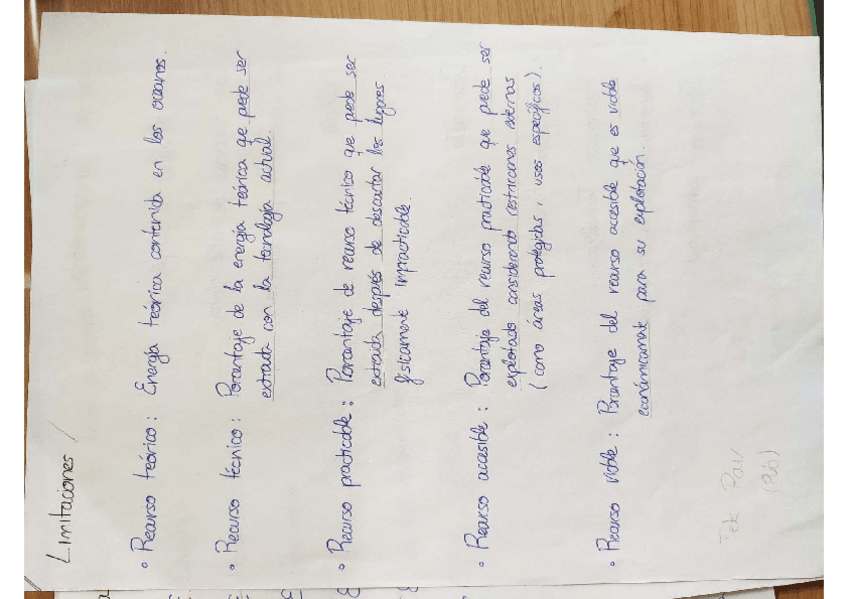 Limitaciones
• Recurso teórico: Energía teórica contenida en los oceanos.
• Recurso técnico: Porcentaje de la energía teórica que puede ser
extraida con la tecnología actual.
• Recurso practicable: Porcentaje de recurso técnico que puede ser
extraida después de descartar los lugares
fisicamente impracticable.
• Recurso accesible: Porcentaje del recurso practicable que puede ser
explotado considerando restricciones externas
(como áreas protegidas, usos específicos).
• Recurso viable: Porcentaje del recurso accesible que es viable
económicamente para su explotación.